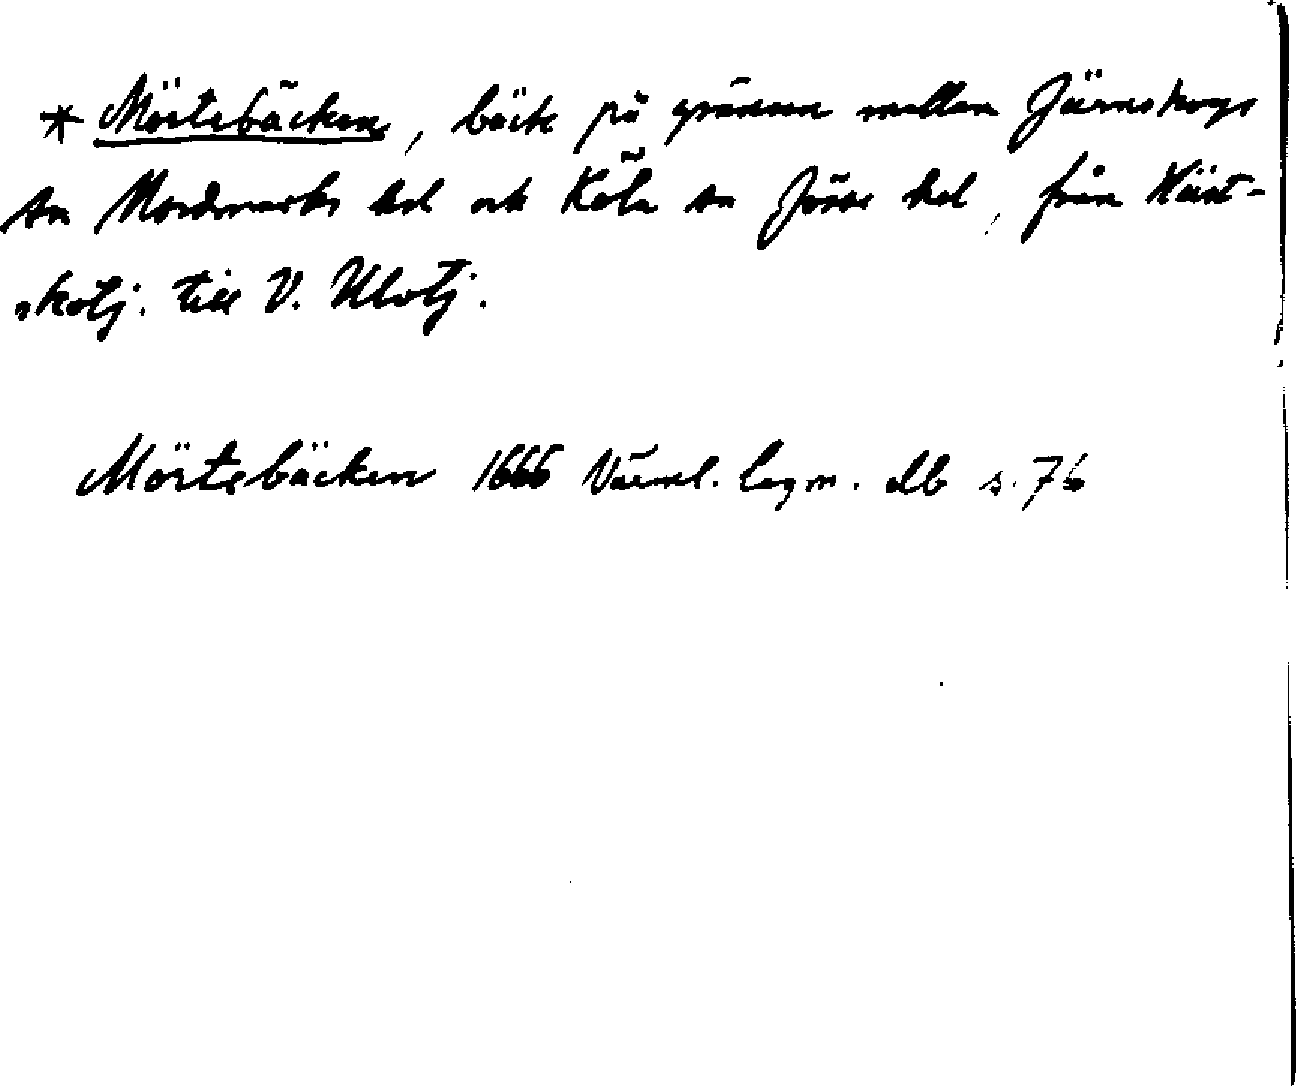 * Mörtebäcken, bäck på gränsen mellan Järnskogs
sn Nordmarks hd och Köla sn Jösse hd, från Näst-
skotj. till V. Ulotj.
Mörtebäcken 1666 Värml. lagm. db s. 76